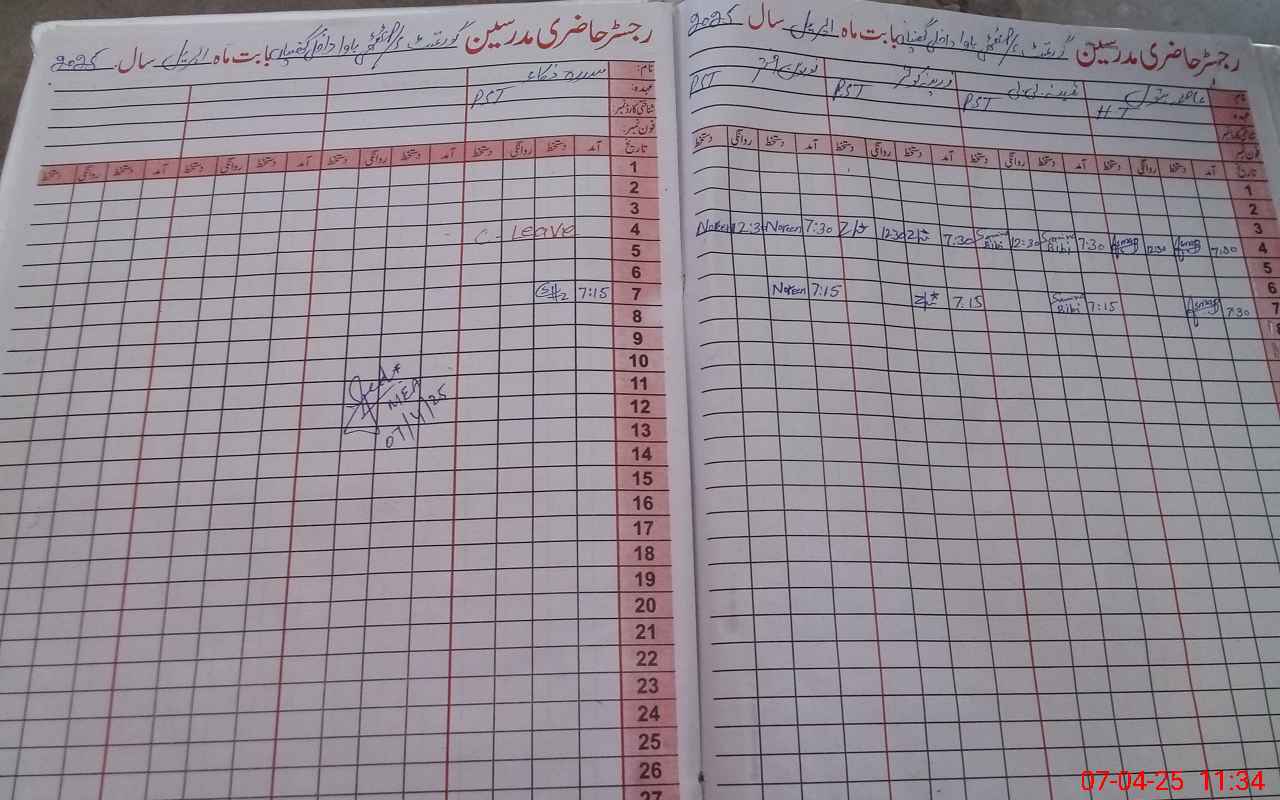 رجسٹر حاضری مدرسین گورنمنٹ باوا داخلی بابت ماہ اپریل سال 2025
نام:
عہدہ: HT PST PST PST
شناختی کارڈ نمبر
فون نمبر
تاریخ آمد دستخط روانگی دستخط آمد دستخط روانگی دستخط آمد دستخط روانگی دستخط آمد دستخط روانگی دستخط
1
2
3
4 7:30 Asmag 12:30 Asmag 7:30 Bibi 12:30 Bibi 7:30 12:30 7:30 Noreen 12:3 Noreen
5
6
7 7:30 Asmag 7:15 Bibi 7:15 7:15 Noreen
رجسٹر حاضری مدرسین گورنمنٹ باوا داخلی بابت ماہ اپریل سال 2025
نام: سدرہ ذکاء
عہدہ: PST
شناختی کارڈ نمبر:
فون نمبر:
تاریخ آمد دستخط روانگی دستخط آمد دستخط روانگی دستخط آمد دستخط روانگی دستخط آمد دستخط روانگی دستخط
1
2
3
4 C-Leave
5
6
7 7:15
8
9
10
11
12
13
14
15
16
17
18
19
20
21
22
23
24
25
26
27
MEA
07/4/25
07-04-25 11:34